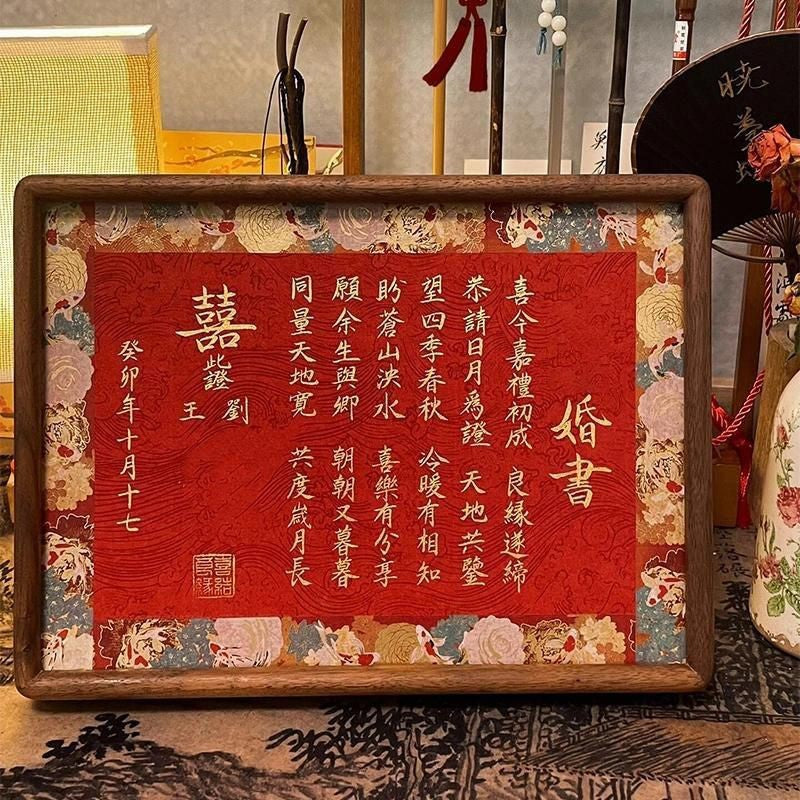 婚書
喜今嘉禮初成 良緣遂締
恭請日月為證 天地共鑒
望四季春秋 冷暖有相知
盼蒼山泱水 喜樂有分享
願余生與卿 朝朝又暮暮
同量天地寬 共度歲月長
囍
此證
劉
王
癸卯年十月十七
喜結良緣